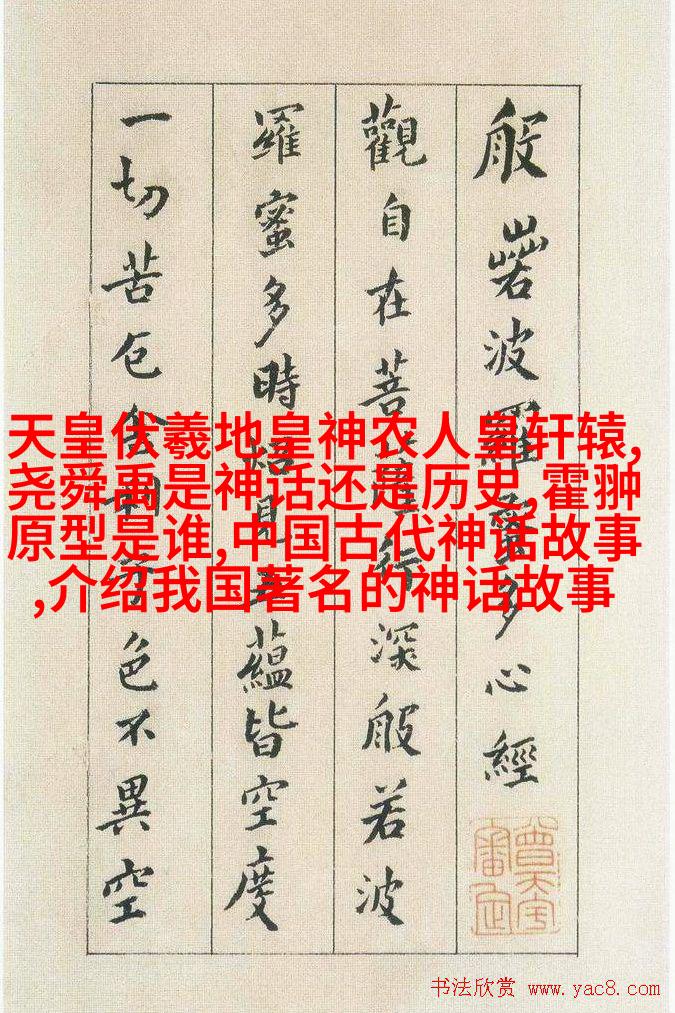 般若波羅蜜多心經
觀自在菩薩行深般若波
羅蜜多時照見五蘊皆空度
一切苦厄舍利子色不異空
天皇伏羲地皇神农人皇轩辕,
尧舜禹是神话还是历史,霍翀
原型是谁,中国古代神话故事
,介绍我国著名的神话故事
书法欣赏 www.yac8.com